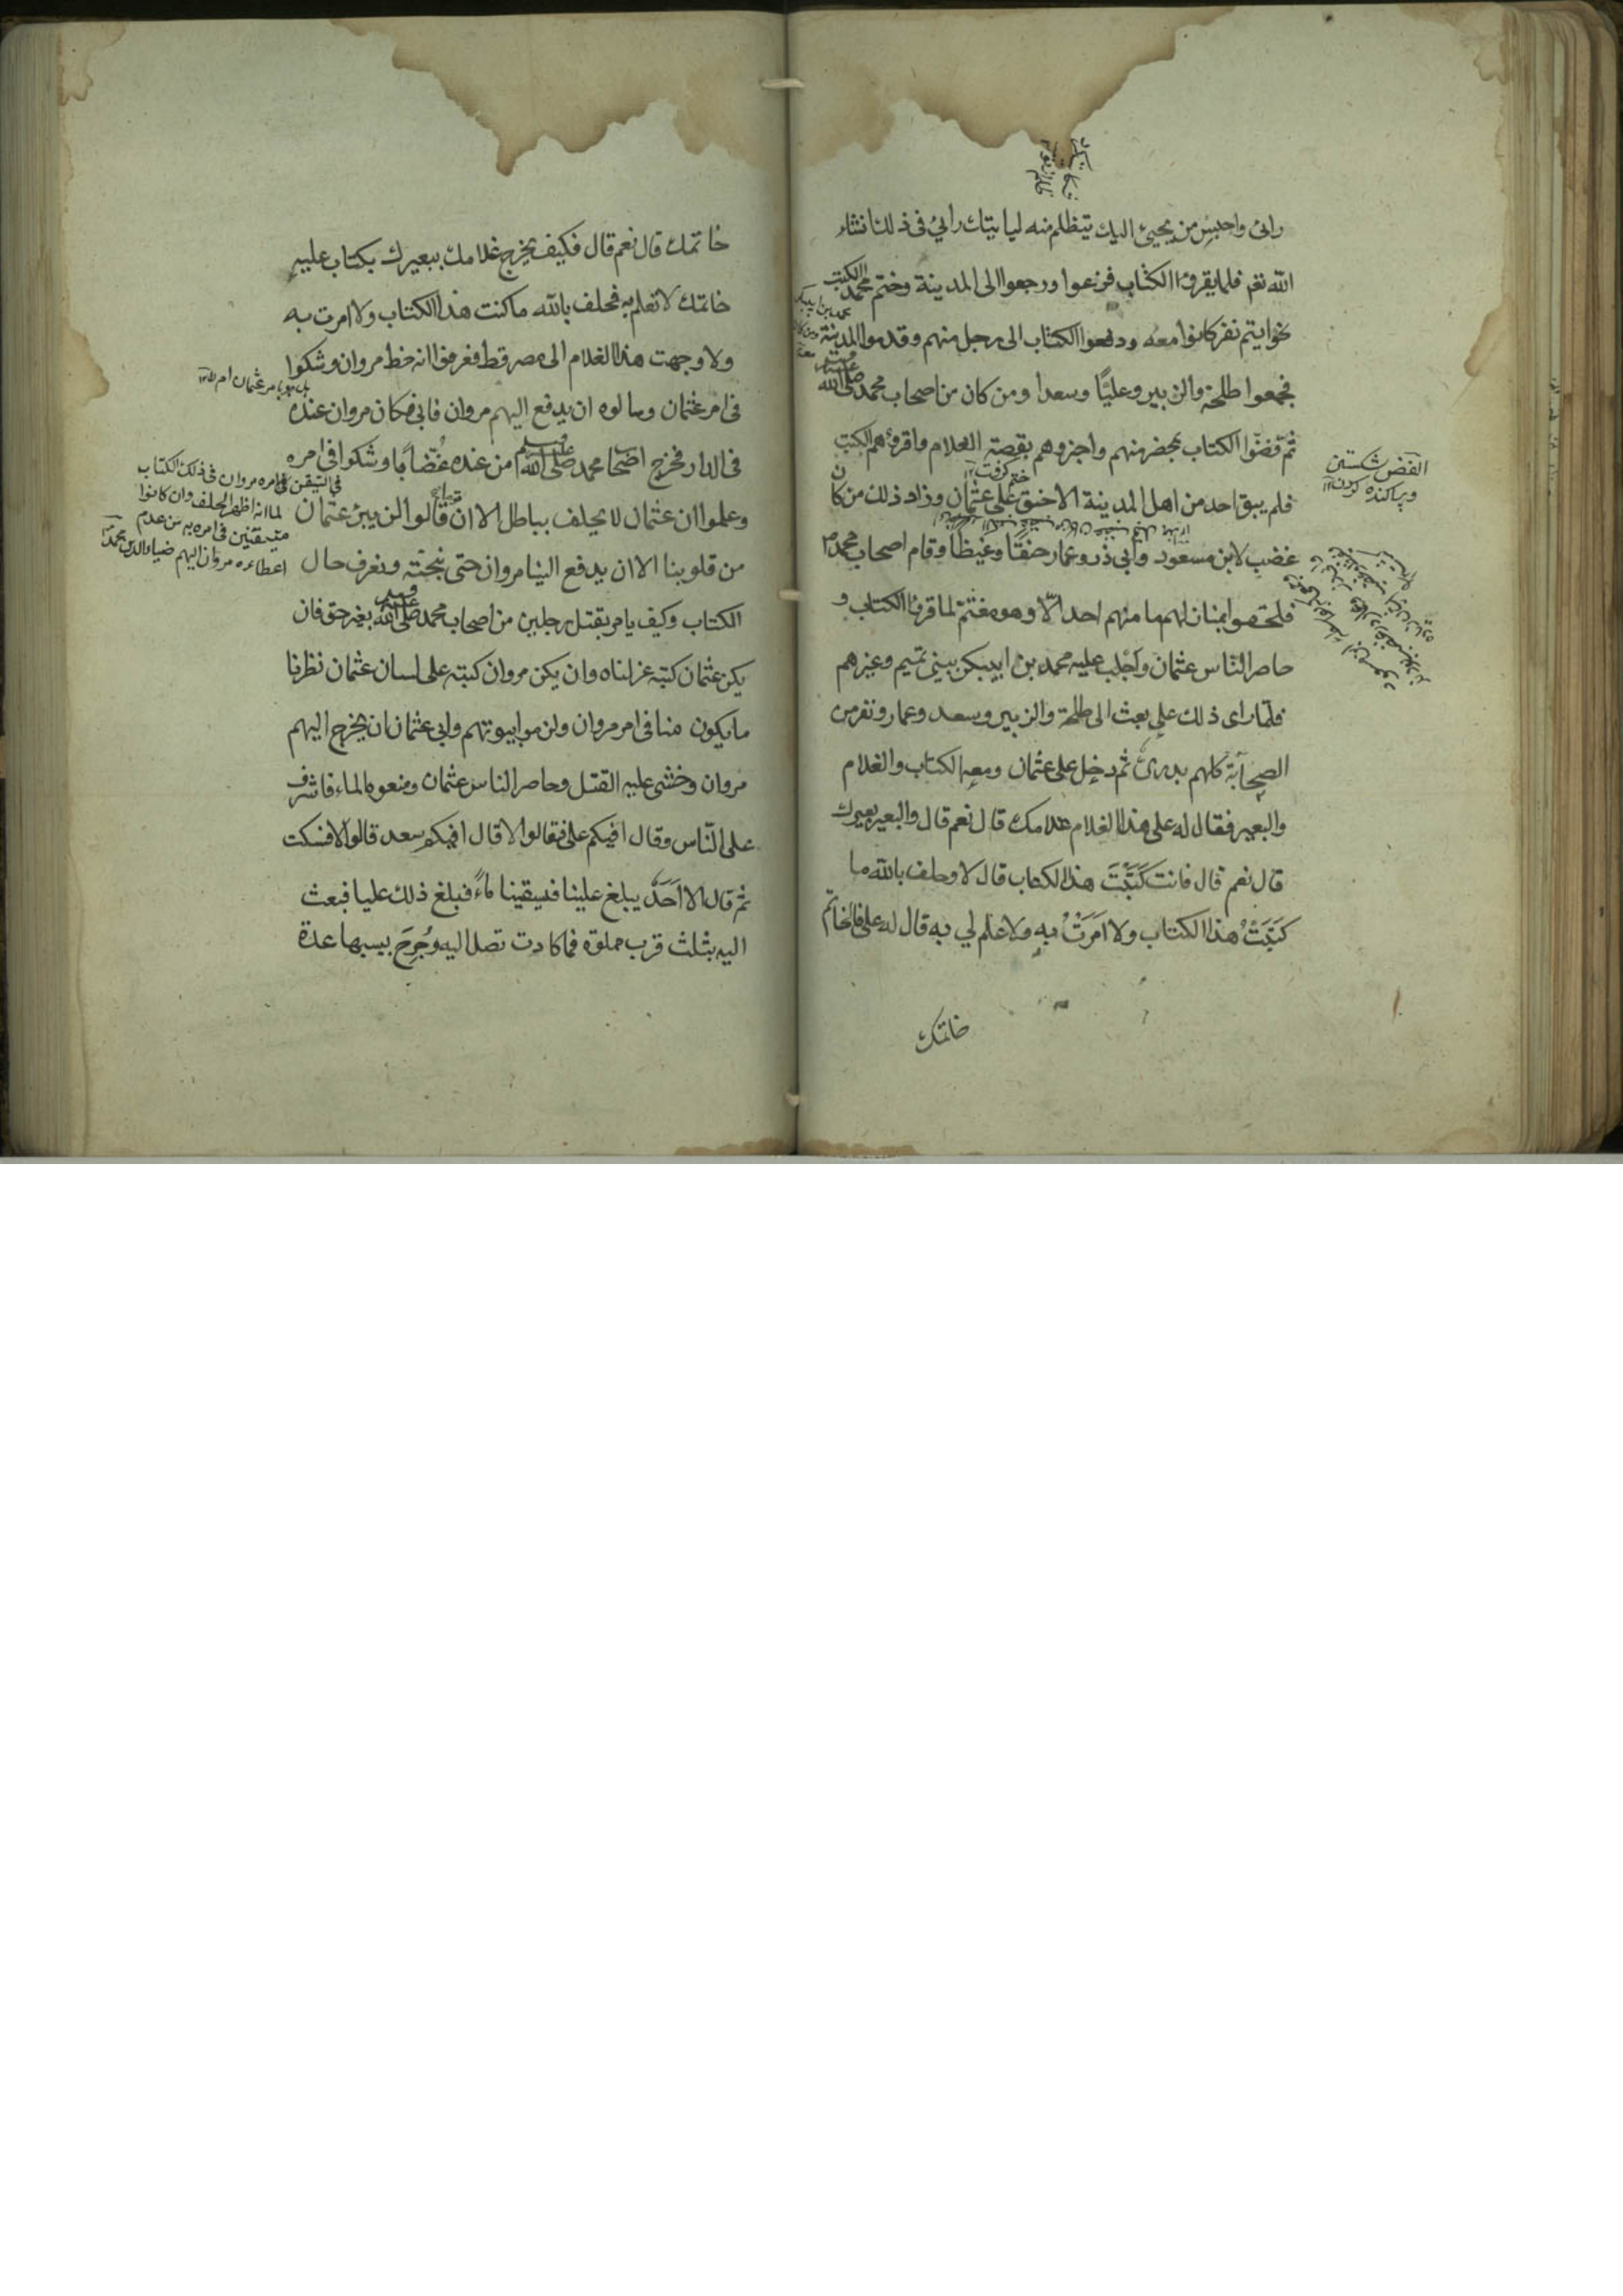 رائ واحبس من يجيئ اليك يتظلم منه لياتيك رايي فى ذلك انشاء
الله تع فلما يقرؤا الكتاب فزعوا ورجعوا الى المدينة وختم محمد الكتب
بخواتيم نفر كانوا معه ودفعوا الكتاب الى رجل منهم وقدموا المدينة
فجمعوا طلحة والزبير وعليًا وسعدا ومن كان من اصحاب محمد صلى الله عليه وسلم
ثم فضّوا الكتاب بمحضر منهم واخبروهم بقصة الغلام واقرؤهم الكتب
فلم يبق احد من اهل المدينة الا خنق على عثمان وزاد ذلك من كان
غضب لابن مسعود وابى ذر وعمار حنقًا وغيظًا وقام اصحاب محمد
فلحقوا بمنازلهم ما منهم احد الّا وهو مغتم لما قرؤا الكتاب و
حاصر الناس عثمان واجلب عليه محمد بن ابيبكر ببنى تميم وغيرهم
فلمّا راى ذلك على بعث الى طلحة والزبير وسعد وعمار ونفر من
الصحابة كلهم بدرىٌ ثم دخل على عثمان ومعه الكتاب والغلام
والبعير فقال له على هذا الغلام غلامك قال نعم قال والبعير بعيرك
قال نعم قال فانت كَتَبْتَ هذا الكتاب قال لا وحلف بالله ما
كَتَبْتُ هذا الكتاب ولا اَمَرْتُ به ولا علم لي به قال له على فالخاتم
خاتمك
الفض شكستن
وپراكنده كردن
خاتمك قال نعم قال فكيف يخرج غلامك ببعيرك بكتاب عليه
خاتمك لا تعلم به فحلف بالله ما كتبت هذا الكتاب ولا امرت به
ولا وجهت هذا الغلام الى مصر قط فعرفوا انه خط مروان وشكوا
فى امر عثمان وسالوه ان يدفع اليهم مروان فابى وكان مروان عنده
فى الدار فخرج اصحا محمد صلى الله عليه وسلم من عنده غُضّابًا وشكوا فى امره
وعلموا ان عثمان لا يحلف بباطل الا ان قالوا لن يبرئ عثمان
من قلوبنا الا ان يدفع الينا مروان حتى نبحثه ونعرف حال
الكتاب وكيف يامر بقتل رجلين من اصحاب محمد صلى الله عليه وسلم بغير حق فان
يكن عثمان كتبه عزلناه وان يكن مروان كتبه على لسان عثمان نظرنا
ما يكون منا فى امر مروان ولزموا بيوتهم وابى عثمان ان يخرج اليهم
مروان وخشى عليه القتل وحاصر الناس عثمان ومنعوه الماء فاشرف
على النّاس وقال افيكم على فقالوا لا قال افيكم سعد قالوا لا فسكت
ثم قال الا اَحَدٌ يبلغ علينا فسيقينا ماءً فبلغ ذلك عليا فبعث
اليه بثلث قرب مملوة فما كادت تصل اليه وجُرِحَ بسببها عدة
بل هو بامر عثمان ام لا
فى التيقن فى امره مروان فى ذلك الكتاب
لما انه اظهر الحلف وان كانوا
متيقنين فى امره به من عدم
اعطاءه مروان اليهم ضياء الدين محمد